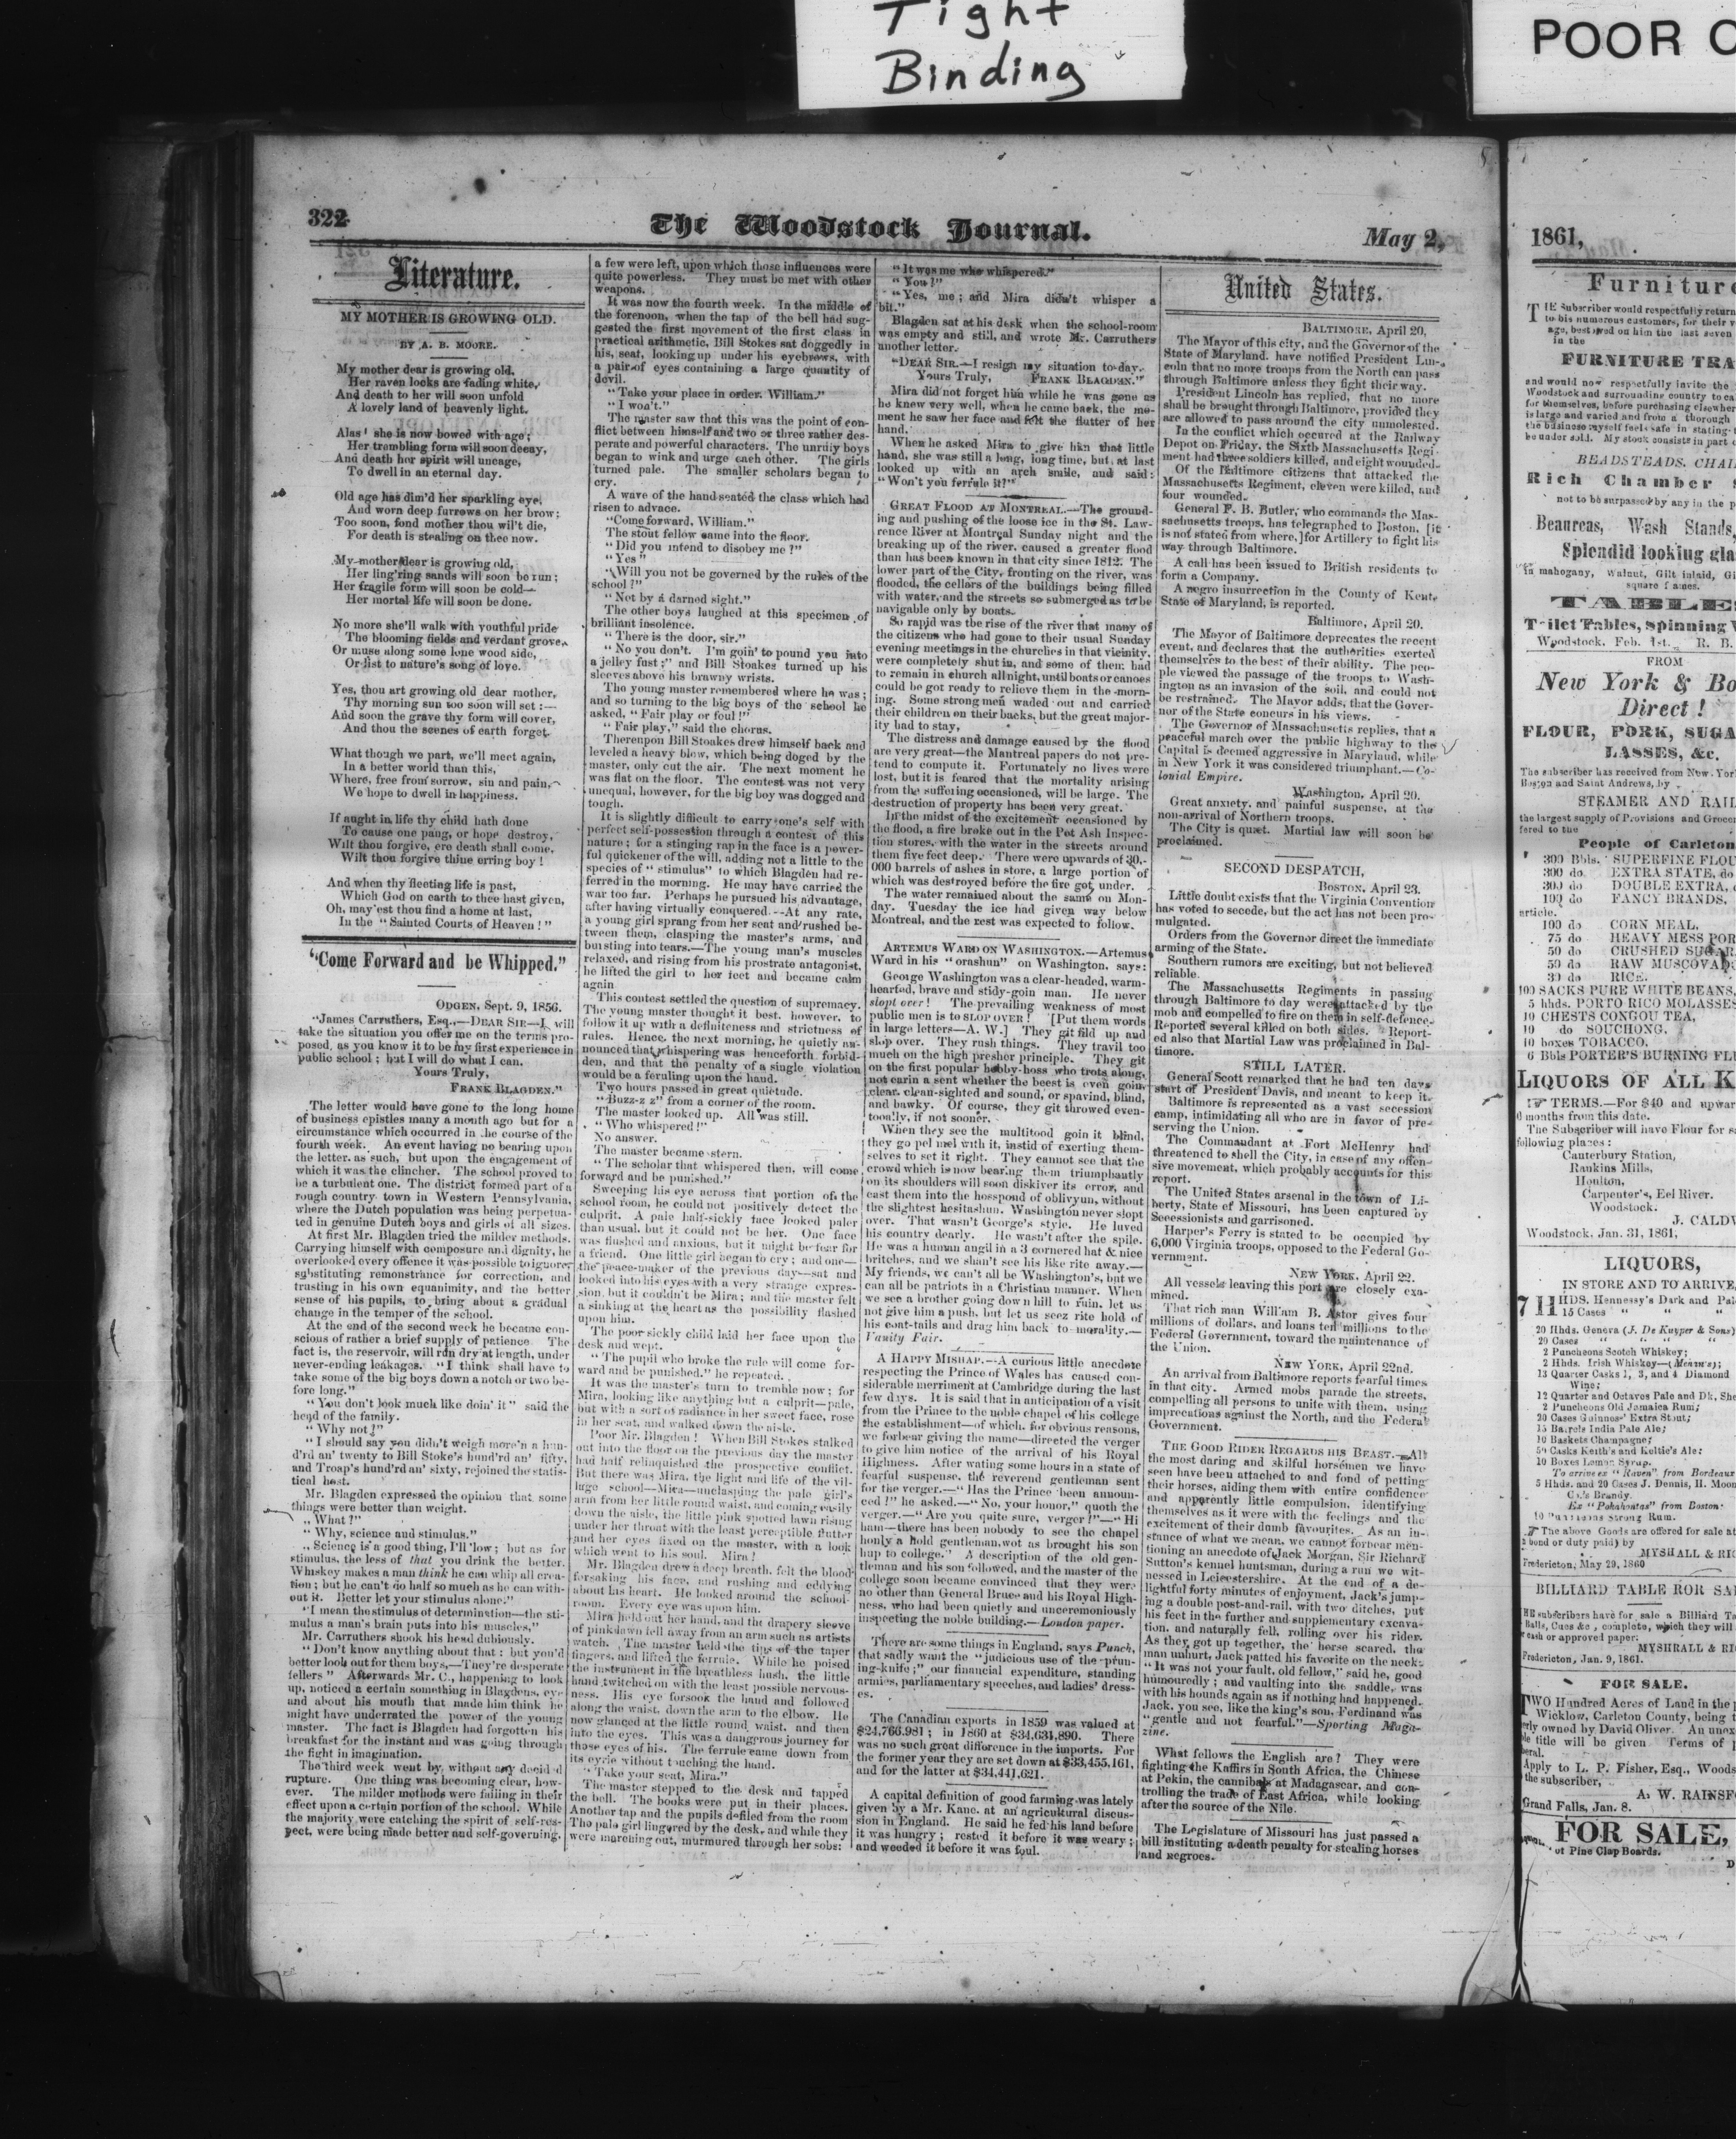 Tight
Binding
POOR
322
The Woodstock Journal.
May 2,
1861,
Literature.
MY MOTHER IS GROWING OLD.
BY A. B. MOORE.
My mother dear is growing old,
Her raven locks are fading white,
And death to her will soon unfold
A lovely land of heavenly light.
Alas! she is now bowed with age;
Her trembling form will soon decay,
And death her spirit will uncage,
To dwell in an eternal day.
Old age has dim'd her sparkling eye,
And worn deep furrows on her brow;
Too soon, fond mother thou wil't die,
For death is stealing on thee now.
My mother dear is growing old,
Her ling'ring sands will soon be run;
Her fragile form will soon be cold—
Her mortal life will soon be done.
No more she'll walk with youthful pride
The blooming fields and verdant grove,
Or muse along some lone wood side,
Or list to nature's song of love.
Yes, thou art growing old dear mother,
Thy morning sun too soon will set:—
And soon the grave thy form will cover,
And thou the scenes of earth forget.
What though we part, we'll meet again,
In a better world than this,
Where, free from sorrow, sin and pain,
We hope to dwell in happiness.
If aught in life thy child hath done
To cause one pang, or hope destroy,
Wilt thou forgive, ere death shall come,
Wilt thou forgive thine erring boy!
And when thy fleeting life is past,
Which God on earth to thee hast given,
Oh, may'est thou find a home at last,
In the "Sainted Courts of Heaven!"
"Come Forward and be Whipped."
ODGEN, Sept. 9, 1856.
"James Carruthers, Esq.,—DEAR SIR—I will
take the situation you offer me on the terms pro-
posed, as you know it to be my first experience in
public school; but I will do what I can.
Yours Truly,
FRANK BLAGDEN."
The letter would have gone to the long home
of business epistles many a month ago but for a
circumstance which occurred in the course of the
fourth week. An event having no bearing upon
the letter, as such, but upon the engagement of
which it was the clincher. The school proved to
be a turbulent one. The district formed part of a
rough country town in Western Pennsylvania,
where the Dutch population was being perpetua-
ted in genuine Dutch boys and girls of all sizes.
At first Mr. Blagden tried the milder methods.
Carrying himself with composure and dignity, he
overlooked every offence it was possible to ignore
substituting remonstrance for correction, and
trusting in his own equanimity, and the better
sense of his pupils, to bring about a gradual
change in the temper of the school.
At the end of the second week he became con-
scious of rather a brief supply of patience The
fact is, the reservoir, will run dry at length, under
never-ending leakages. "I think shall have to
take some of the big boys down a notch or two be-
fore long."
"You don't look much like doin' it" said the
head of the family.
"Why not?"
"I should say you didn't weigh more'n a hun-
d'rd an' twenty to Bill Stoke's hund'rd an' fifty,
and Troap's hund'rd an' sixty, rejoined the statis-
tical host.
Mr. Blagden expressed the opinion that some
things were better than weight.
"What?"
"Why, science and stimulus."
"Science is a good thing, I'll 'low; but as for
stimulus, the less of that you drink the better.
Whiskey makes a man think he can whip all crea-
tion; but he can't do half so much as he can with-
out it. Better let your stimulus alone."
"I mean the stimulus of determination—the sti-
mulus a man's brain puts into his muscles,"
Mr. Carruthers shook his head dubiously.
"Don't know anything about that: but you'd
better look out for them boys,—They're desperate
fellers" Afterwards Mr. C., happening to look
up, noticed a certain something in Blagdens, eye
and about his mouth that made him think he
might have underrated the power of the young
master. The fact is Blagden had forgotten his
breakfast for the instant and was going through
the fight in imagination.
The third week went by without any decid d
rupture. One thing was becoming clear, how-
ever. The milder methods were failing in their
effect upon a certain portion of the school. While
the majority were catching the spirit of self-res-
pect, were being made better and self-governing,
a few were left, upon which those influences were
quite powerless. They must be met with other
weapons.
It was now the fourth week. In the middle of
the forenoon, when the tap of the bell had sug-
gested the first movement of the first class in
practical arithmetic, Bill Stokes sat doggedly in
his, seat, looking up under his eyebrows, with
a pair of eyes containing a large quantity of
devil.
"Take your place in order. William."
"I won't."
The master saw that this was the point of con-
flict between himself and two or three rather des-
perate and powerful characters. The unruly boys
began to wink and urge each other. The girls
turned pale. The smaller scholars began to
cry.
A wave of the hand seated the class which had
risen to advace.
"Come forward, William."
The stout fellow came into the floor.
"Did you intend to disobey me?"
"Yes"
"Will you not be governed by the rules of the
school?"
"Not by a darned sight."
The other boys laughed at this specimen of
brilliant insolence.
"There is the door, sir."
"No you don't. I'm goin' to pound you into
a jelley fust;" and Bill Stoakes turned up his
sleeves above his brawny wrists.
The young master remembered where he was;
and so turning to the big boys of the school he
asked, "Fair play or foul!"
"Fair play," said the chorus.
Thereupon Bill Stoakes drew himself back and
leveled a heavy blow, which being doged by the
master, only cut the air. The next moment he
was flat on the floor. The contest was not very
unequal, however, for the big boy was dogged and
tough.
It is slightly difficult to carry one's self with
perfect self-possestion through a contest of this
nature; for a stinging rap in the face is a power-
ful quickener of the will, adding not a little to the
species of "stimulus" to which Blagden had re-
ferred in the morning. He may have carried the
war too far. Perhaps he pursued his advantage,
after having virtually conquered.--At any rate,
a young girl sprang from her seat and rushed be-
tween them, clasping the master's arms, and
bursting into tears.—The young man's muscles
relaxed, and rising from his prostrate antagonist,
he lifted the girl to her feet and became calm
again
This contest settled the question of supremacy.
The young master thought it best, however, to
follow it up with a definiteness and strictness of
rules. Hence, the next morning, he quietly an-
nounced that whispering was henceforth forbid-
den, and that the penalty of a single violation
would be a feruling upon the hand.
Two hours passed in great quietude.
"Buzz-z z" from a corner of the room.
The master looked up. All was still.
"Who whispered!"
No answer.
The master became stern.
"The scholar that whispered then, will come
forward and be punished."
Sweeping his eye across that portion of the
school room, he could not positively detect the
culprit. A pale half-sickly face looked paler
than usual, but it could not be her. One face
was flushed and anxious, but it might be fear for
a friend. One little girl began to cry; and one—
the peace-maker of the previous day—sat and
looked into his eyes with a very strange expres-
sion, but it couldn't be Mira; and the master felt
a sinking at the heart as the possibility flashed
upon him.
The poor sickly child laid her face upon the
desk and wept.
"The pupil who broke the rule will come for-
ward and be punished." he repeated.
It was the master's turn to tremble now; for
Mira, looking like anything but a culprit—pale,
but with a sort of radiance in her sweet face, rose
in her seat, and walked down the aisle.
Poor Mr. Blagden! When Bill Stokes stalked
out into the floor on the previous day the master
had half relinquished the prospective conflict.
But there was Mira, the light and life of the vil-
lage school—Mira—unclasping the pale girl's
arm from her little round waist, and coming easily
down the aisle, the little pink spotted lawn rising
under her throat with the least perceptible flutter
and her eyes fixed on the master, with a look
which went to his soul. Mira!
Mr. Blagden drew a deep breath, felt the blood
forsaking his face, and rushing and eddying
about his heart. He looked around the school-
room. Every eye was upon him.
Mira held out her hand, and the drapery sleeve
of pink dawn fell away from an arm such as artists
watch. The master held the tips of the taper
fingers, and lifted the ferrule. While he poised
the instrument in the breathless hush, the little
hand twitched on with the least possible nervous-
ness. His eye forsook the hand and followed
along the waist, down the arm to the elbow. He
now glanced at the little round waist, and then
into the eyes. This was a dangerous journey for
those eyes of his. The ferrule came down from
its eyrie without touching the hand.
"Take your seat, Mira."
The master stepped to the desk and tapped
the bell. The books were put in their places.
Another tap and the pupils defiled from the room
The pale girl lingered by the desk, and while they
were marching out, murmured through her sobs:
"It was me who whispered."
"You?"
"Yes, me; and Mira didn't whisper a
bit."
Blagden sat at his desk when the school-room
was empty and still, and wrote Mr. Carruthers
another letter.
"DEAR SIR.—I resign my situation to-day.
Yours Truly, FRANK BLAGDEN."
Mira did not forget him while he was gone as
he knew very well, when he come back, the mo-
ment he saw her face and felt the flutter of her
hand.
When he asked Mira to give him that little
hand, she was still a long, long time, but, at last
looked up with an arch smile, and said:
"Won't you ferrule it?"
GREAT FLOOD AT MONTREAL.—The ground-
ing and pushing of the loose ice in the St. Law-
rence River at Montreal Sunday night and the
breaking up of the river, caused a greater flood
than has been known in that city since 1812. The
lower part of the City, fronting on the river, was
flooded, the cellars of the buildings being filled
with water, and the streets so submerged as to be
navigable only by boats.
So rapid was the rise of the river that many of
the citizens who had gone to their usual Sunday
evening meetings in the churches in that vicinity,
were completely shut in, and some of them had
to remain in church all night, until boats or canoes
could be got ready to relieve them in the morn-
ing. Some strong men waded out and carried
their children on their backs, but the great major-
ity had to stay,
The distress and damage caused by the flood
are very great—the Mantreal papers do not pre-
tend to compute it. Fortunately no lives were
lost, but it is feared that the mortality arising
from the suffering occasioned, will be large. The
destruction of property has been very great.
In the midst of the excitement occasioned by
the flood, a fire broke out in the Pot Ash Inspec-
tion stores, with the water in the streets around
them five feet deep. There were upwards of 30,-
000 barrels of ashes in store, a large portion of
which was destroyed before the fire got under.
The water remained about the same on Mon-
day. Tuesday the ice had given way below
Montreal, and the rest was expected to follow.
ARTEMUS WARD ON WASHINGTON.—Artemus
Ward in his "orashun" on Washington, says:
George Washington was a clear-headed, warm-
hearted, brave and stidy-goin man. He never
slopt over! The prevailing weakness of most
public men is to SLOP OVER! [Put them words
in large letters—A. W.] They git fild up and
slop over. They rush things. They travil too
much on the high presher principle. They git
on the first popular hobby-hoss who trots along,
not carin a sent whether the beest is even goin,
clear, clean-sighted and sound, or spavind, blind,
and bawky. Of course, they git throwed even-
tooally, if not sooner.
When they see the multitood goin it blind,
they go pel mel with it, instid of exerting them-
selves to set it right. They cannot see that the
crowd which is now bearing them triumphantly
on its shoulders will soon diskiver its error, and
cast them into the hosspond of oblivyun, without
the slightest hesitashun. Washington never slopt
over. That wasn't George's style. He luved
his country dearly. He wasn't after the spile.
He was a human angil in a 3 cornered hat & nice
britches, and we shan't see his like rite away.—
My friends, we can't all be Washington's, but we
can all be patriots in a Christian manner. When
we see a brother going down hill to ruin, let us
not give him a push, but let us seez rite hold of
his coat-tails and drag him back to morality.—
Vanity Fair.
A HAPPY MISHAP.—A curious little anecdote
respecting the Prince of Wales has caused con-
siderable merriment at Cambridge during the last
few days. It is said that in anticipation of a visit
from the Prince to the noble chapel of his college
the establishment—of which, for obvious reasons,
we forbear giving the name—directed the verger
to give him notice of the arrival of his Royal
Highness. After wating some hours in a state of
fearful suspense, the reverend gentleman sent
for the verger.—"Has the Prince been announ-
ced?" he asked.—"No, your honor," quoth the
verger.—"Are you quite sure, verger?"—"Hi
ham—there has been nobody to see the chapel
honly a hold gentleman, wot as brought his son
hup to college." A description of the old gen-
tleman and his son followed, and the master of the
college soon became convinced that they were
no other than General Bruce and his Royal High-
ness, who had been quietly and unceremoniously
inspecting the noble building.—London paper.
There are some things in England, says Punch,
that sadly want the "judicious use of the prun-
ing-knife;" our financial expenditure, standing
armies, parliamentary speeches, and ladies' dress-
es.
The Canadian exports in 1859 was valued at
$24,766,981; in 1860 at $34,631,890. There
was no such great difference in the imports. For
the former year they are set down at $33,455,161,
and for the latter at $34,441,621.
A capital definition of good farming was lately
given by a Mr. Kane, at an agricultural discus-
sion in England. He said he fed his land before
it was hungry; rested it before it was weary;
and weeded it before it was foul.
United States.
BALTIMORE, April 20,
The Mayor of this city, and the Governor of the
State of Maryland, have notified President Lin-
coln that no more troops from the North can pass
through Baltimore unless they fight their way.
President Lincoln has replied, that no more
shall be brought through Baltimore, provided they
are allowed to pass around the city unmolested.
In the conflict which occured at the Railway
Depot on Friday, the Sixth Massachusetts Regi-
ment had three soldiers killed, and eight wounded.
Of the Baltimore citizens that attacked the
Massachusetts Regiment, eleven were killed, and
four wounded.
General F. B. Butler, who commands the Mas-
sachusetts troops, has telegraphed to Boston, [it
is not stated from where,] for Artillery to fight his
way through Baltimore.
A call has been issued to British residents to
form a Company.
A negro insurrection in the County of Kent,
State of Maryland, is reported.
Baltimore, April 20.
The Mayor of Baltimore deprecates the recent
event, and declares that the authorities exerted
themselves to the best of their ability. The peo-
ple viewed the passage of the troops to Wash-
ington as an invasion of the soil, and could not
be restrained. The Mayor adds, that the Gover-
nor of the State concurs in his views.
The Governor of Massachusetts replies, that a
peaceful march over the public highway to the
Capital is deemed aggressive in Maryland, while
in New York it was considered triumphant.—Co-
lonial Empire.
Washington, April 20.
Great anxiety, and painful suspense, at the
non-arrival of Northern troops.
The City is quiet. Martial law will soon be
proclaimed.
SECOND DESPATCH,
BOSTON, April 23.
Little doubt exists that the Virginia Convention
has voted to secede, but the act has not been pro-
mulgated.
Orders from the Governor direct the immediate
arming of the State.
Southern rumors are exciting, but not believed
reliable.
The Massachusetts Regiments in passing
through Baltimore to day were attacked by the
mob and compelled to fire on them in self-defence.
Reported several killed on both sides. Report-
ed also that Martial Law was proclaimed in Bal-
timore.
STILL LATER.
General Scott remarked that he had ten days
start of President Davis, and meant to keep it.
Baltimore is represented as a vast secession
camp, intimidating all who are in favor of pre-
serving the Union.
The Commandant at Fort McHenry had
threatened to shell the City, in case of any offen-
sive movement, which probably accounts for this
report.
The United States arsenal in the town of Li-
berty, State of Missouri, has been captured by
Secessionists and garrisoned.
Harper's Ferry is stated to be occupied by
6,000 Virginia troops, opposed to the Federal Go-
vernment.
NEW YORK, April 22.
All vessels leaving this port are closely exa-
mined.
That rich man William B. Astor gives four
millions of dollars, and loans ten millions to the
Federal Government, toward the maintenance of
the Union.
NEW YORK, April 22nd.
An arrival from Baltimore reports fearful times
in that city. Armed mobs parade the streets,
compelling all persons to unite with them, using
imprecations against the North, and the Federal
Government.
THE GOOD RIDER REGARDS HIS BEAST.—All
the most daring and skilful horsemen we have
seen have been attached to and fond of petting
their horses, aiding them with entire confidence
and apparently little compulsion, identifying
themselves as it were with the feelings and the
excitement of their dumb favourites. As an in-
stance of what we mean, we cannot forbear men-
tioning an anecdote of Jack Morgan, Sir Richard
Sutton's kennel huntsman, during a run we wit-
nessed in Leicestershire. At the end of a de-
lightful forty minutes of enjoyment, Jack's jump-
ing a double post-and-rail, with two ditches, put
his feet in the further and supplementary excava-
tion, and naturally fell, rolling over his rider.
As they got up together, the horse scared, the
man unhurt, Jack patted his favorite on the neck.
"It was not your fault, old fellow," said he, good
humouredly; and vaulting into the saddle, was
with his hounds again as if nothing had happened.
Jack, you see, like the king's son, Ferdinand was
"gentle and not fearful."—Sporting Maga-
zine.
What fellows the English are? They were
fighting the Kaffirs in South Africa, the Chinese
at Pekin, the cannibals at Madagascar, and con-
trolling the trade of East Africa, while looking
after the source of the Nile.
The Legislature of Missouri has just passed a
bill instituting a death penalty for stealing horses
and negroes.
Furniture
THE Subscriber would respectfully return
to his numerous customers, for their
age, bestowed on him the last seven
in the
FURNITURE TRA
and would now respectfully invite the
Woodstock and surrounding country to ca
for themselves, before purchasing elsewher
is large and varied and from a thorough
the business myself feels safe in stating
be under sold. My stock consists in part
BEADSTEADS. CHAI
Rich Chamber
not to be surpassed by any in the
Beaureas, Wash Stands,
Splendid looking gla
in mahogany, Walnut, Gilt inlaid, Gi
square frames.
TABLES
Toilet Tables, Spinning
Woodstock, Feb. 1st. R. B.
FROM
New York & Bo
Direct!
FLOUR, PORK, SUGA
LASSES, &c.
The subscriber has received from New Yor
Boston and Saint Andrews, by
STEAMER AND RAIL
the largest supply of Provisions and Grocer
fered to the
People of Carleton
300 Bbls. SUPERFINE FLOU
300 do EXTRA STATE, do
300 do DOUBLE EXTRA,
100 do FANCY BRANDS,
article.
100 do CORN MEAL.
75 do HEAVY MESS POR
50 do CRUSHED SUGAR
50 do RAW MUSCOVAD
30 do RICE.
100 SACKS PURE WHITE BEANS,
5 hhds. PORTO RICO MOLASSES
10 CHESTS CONGOU TEA,
10 do SOUCHONG.
10 boxes TOBACCO.
6 Bbls PORTER'S BURNING FL
LIQUORS OF ALL K
TERMS.—For $40 and upwar
months from this date.
The Subscriber will have Flour for s
following places:
Canterbury Station,
Rankins Mills,
Houlton,
Carpenter's, Eel River.
Woodstock.
J. CALDW
Woodstock, Jan. 31, 1861,
LIQUORS,
IN STORE AND TO ARRIVE,
7 HHDS. Hennessy's Dark and Pal
15 Cases " " "
20 Hhds. Geneva (J. De Kuyper & Sons)
20 Cases " " "
2 Puncheons Scotch Whiskey;
2 Hhds. Irish Whiskey—
13 Quarter Casks 1, 3, and 4 Diamond
Wine;
12 Quarter and Octaves Pale and Dk. She
2 Puncheons Old Jamaica Rum;
20 Cases Guinness' Extra Stout;
15 Barrels India Pale Ale;
10 Baskets Champagne;
50 Casks Keith's and Keltie's Ale:
10 Boxes Lemon Syrup.
To arrive ex "Raven" from Bordeaux
5 Hhds. and 20 Cases J. Dennis, H. Moun
Co.'s Brandy.
Ex "Pokahontas" from Boston
10 Puncheons Strong Rum.
The above Goods are offered for sale at
bond or duty paid) by
MYSHALL & RIC
Fredericton, May 29, 1860
BILLIARD TABLE ROR SA
subscribers have for sale a Billiard Ta
Balls, Cues &c, complete, which they will
cash or approved paper.
MYSHRALL & RI
Fredericton, Jan. 9, 1861.
FOR SALE.
TWO Hundred Acres of Land in the
Wicklow, Carleton County, being
owned by David Oliver. An unex
title will be given Terms of
Apply to L. P. Fisher, Esq., Woods
the subscriber,
A. W. RAINSF
Grand Falls, Jan. 8.
FOR SALE,
of Pine Clap Boards.